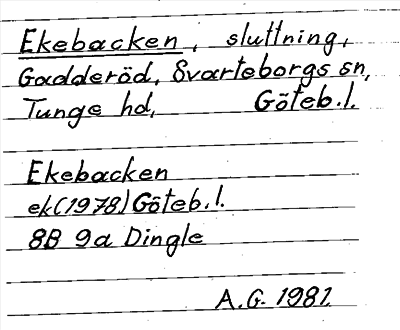 Ekebacken, sluttning,
Gadderöd, Svarteborgs sn,
Tunge hd, Göteb.l.
Ekebacken
ek(1978) Göteb.l.
8B 9a Dingle
A.G. 1981.